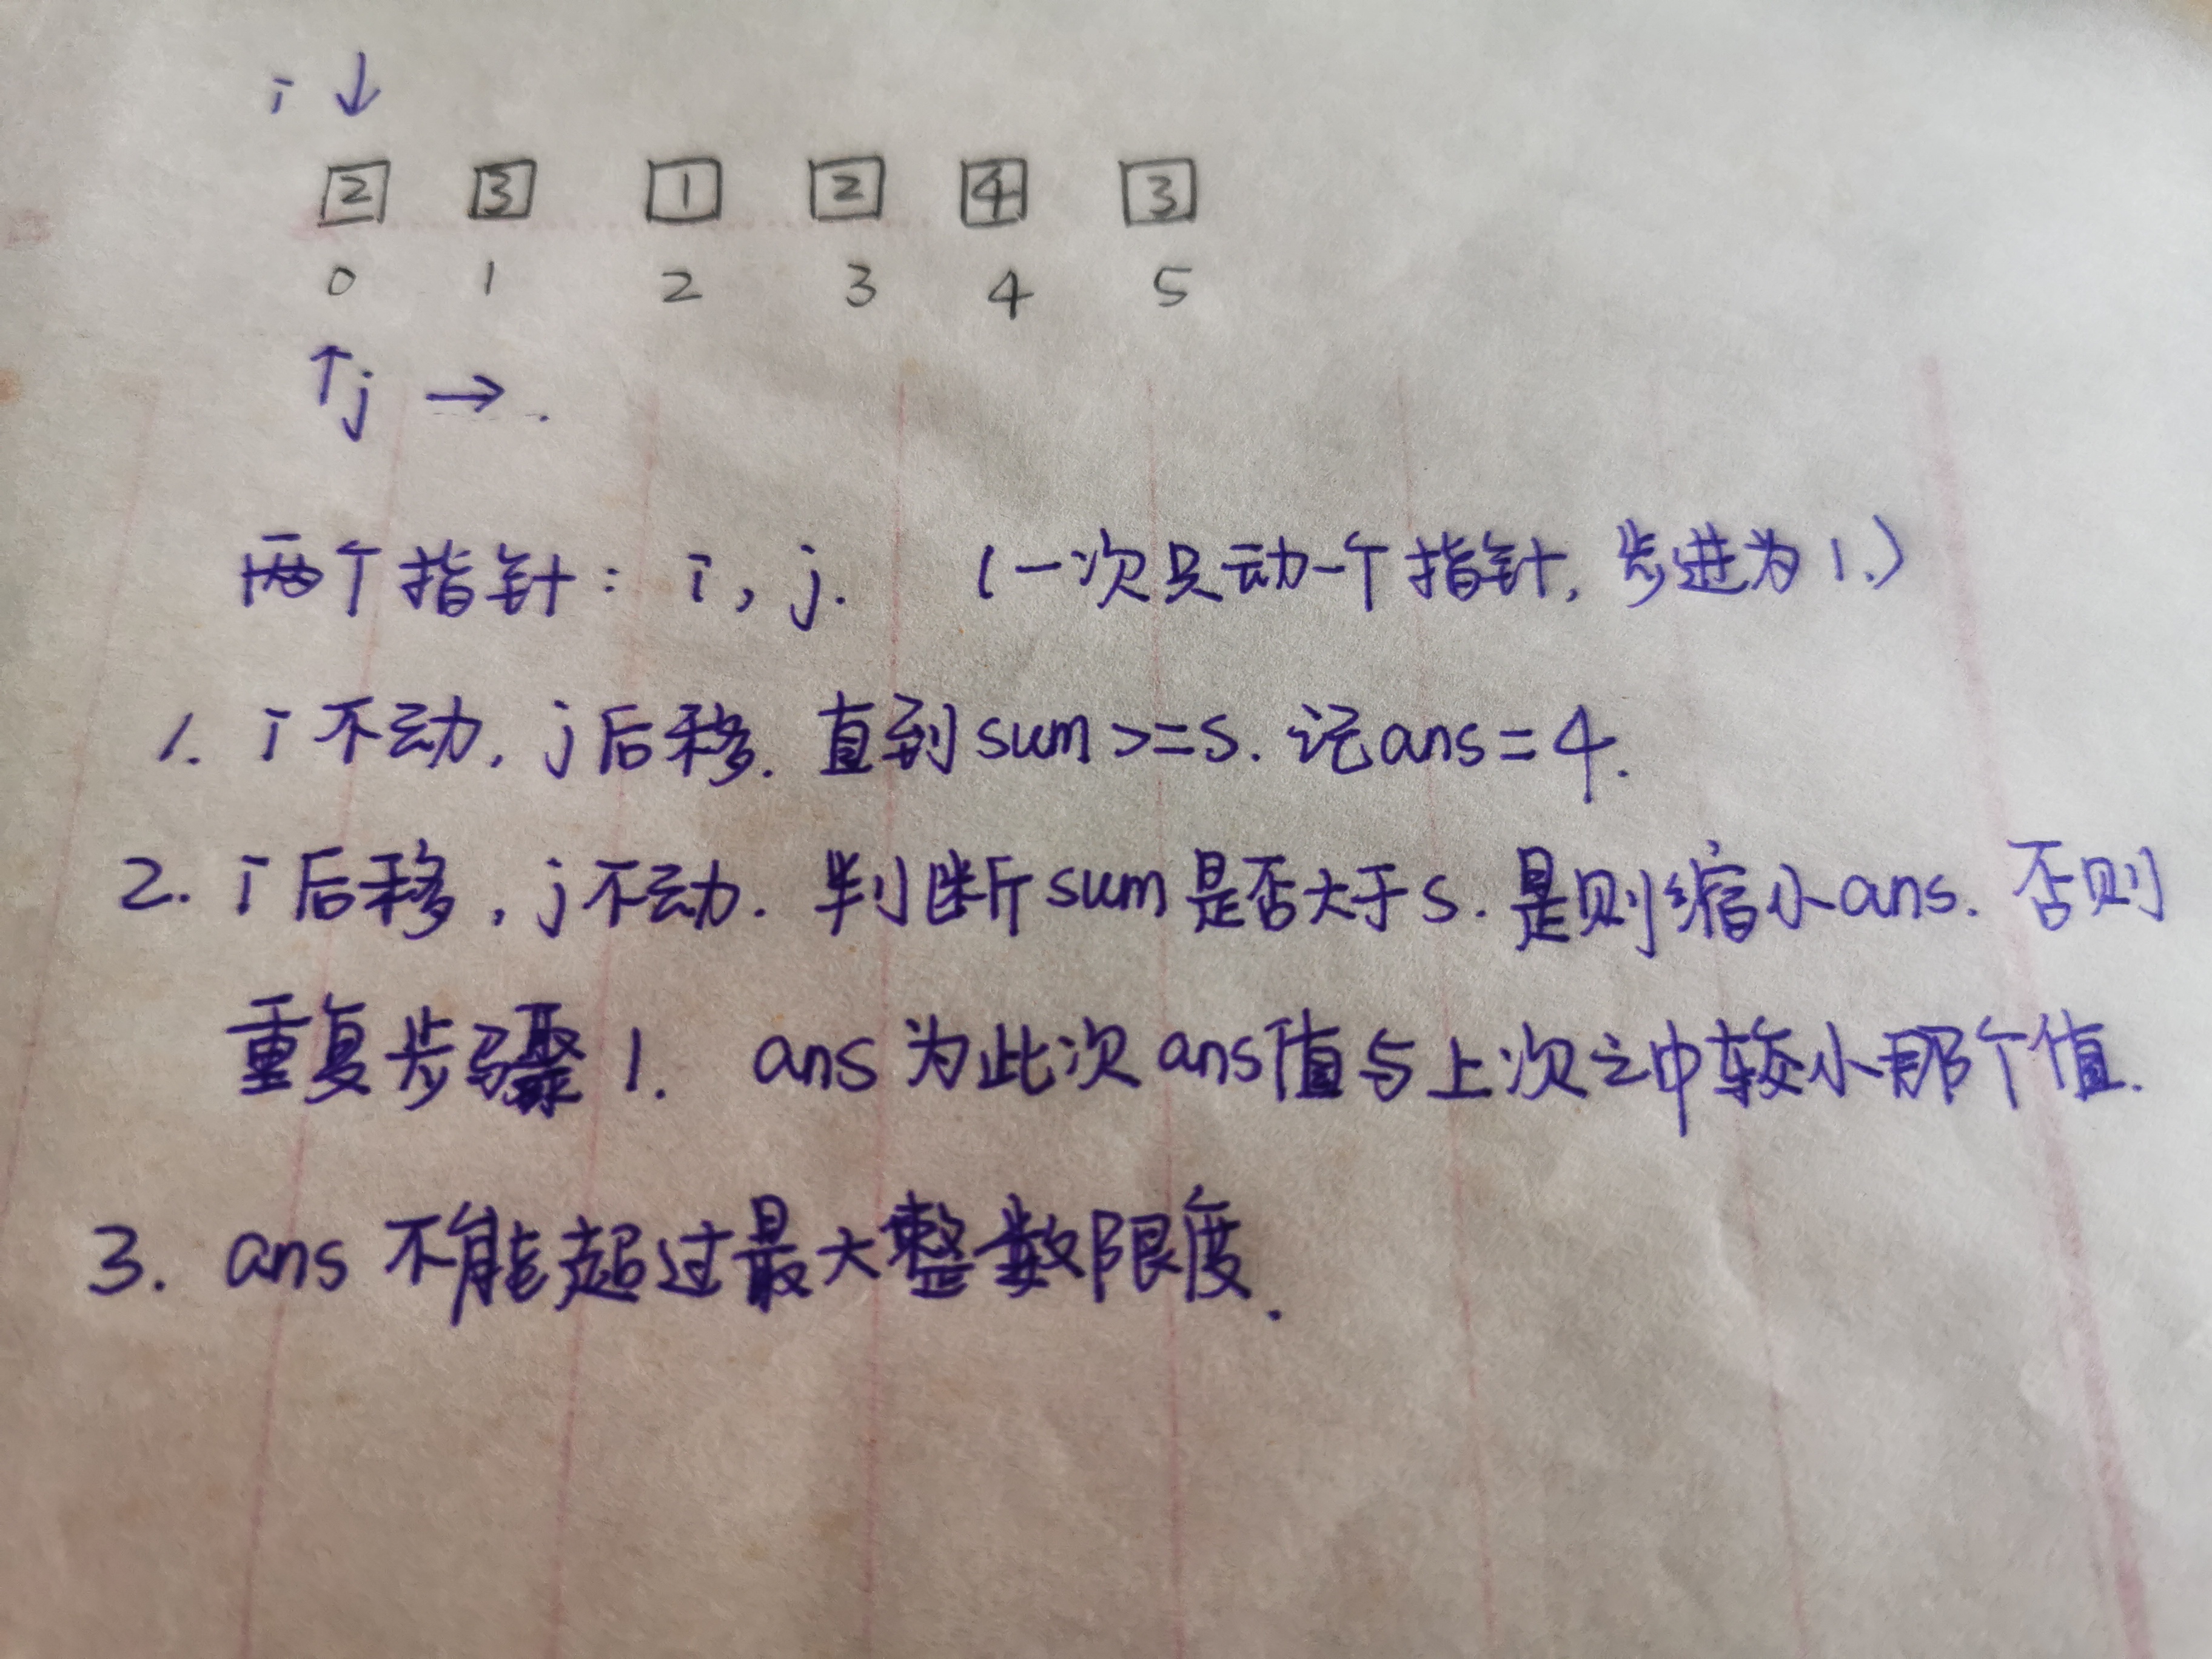 i ↓
2 3 1 2 4 3
0 1 2 3 4 5
↑j → .
两个指针: i, j. (一次只动一个指针, 步进为1.)
1. i不动, j后移. 直到sum>=s. 记ans=4.
2. i后移, j不动. 判断sum是否大于s. 是则缩小ans. 否则
重复步骤1. ans为此次ans值与上次之中较小那个值.
3. ans不能超过最大整数限度.